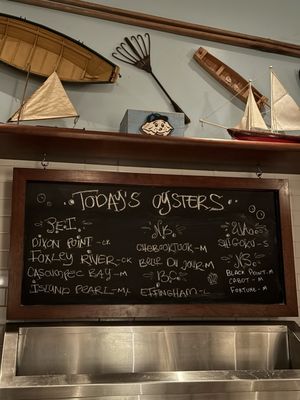 TODAY'S OYSTERS
P.E.I.
DIXON POINT - CK
FOXLEY RIVER - CK
CASCUMPEC BAY - M
ISLAND PEARL - M
N.B.
CHEBOOKTOOK - M
BEAU DU JOUR - M
B.C.
EFFINGHAM - L
WA.
SHIGOKU - S
N.S.
BLACK POINT - M
CABOT - M
FORTUNE - M